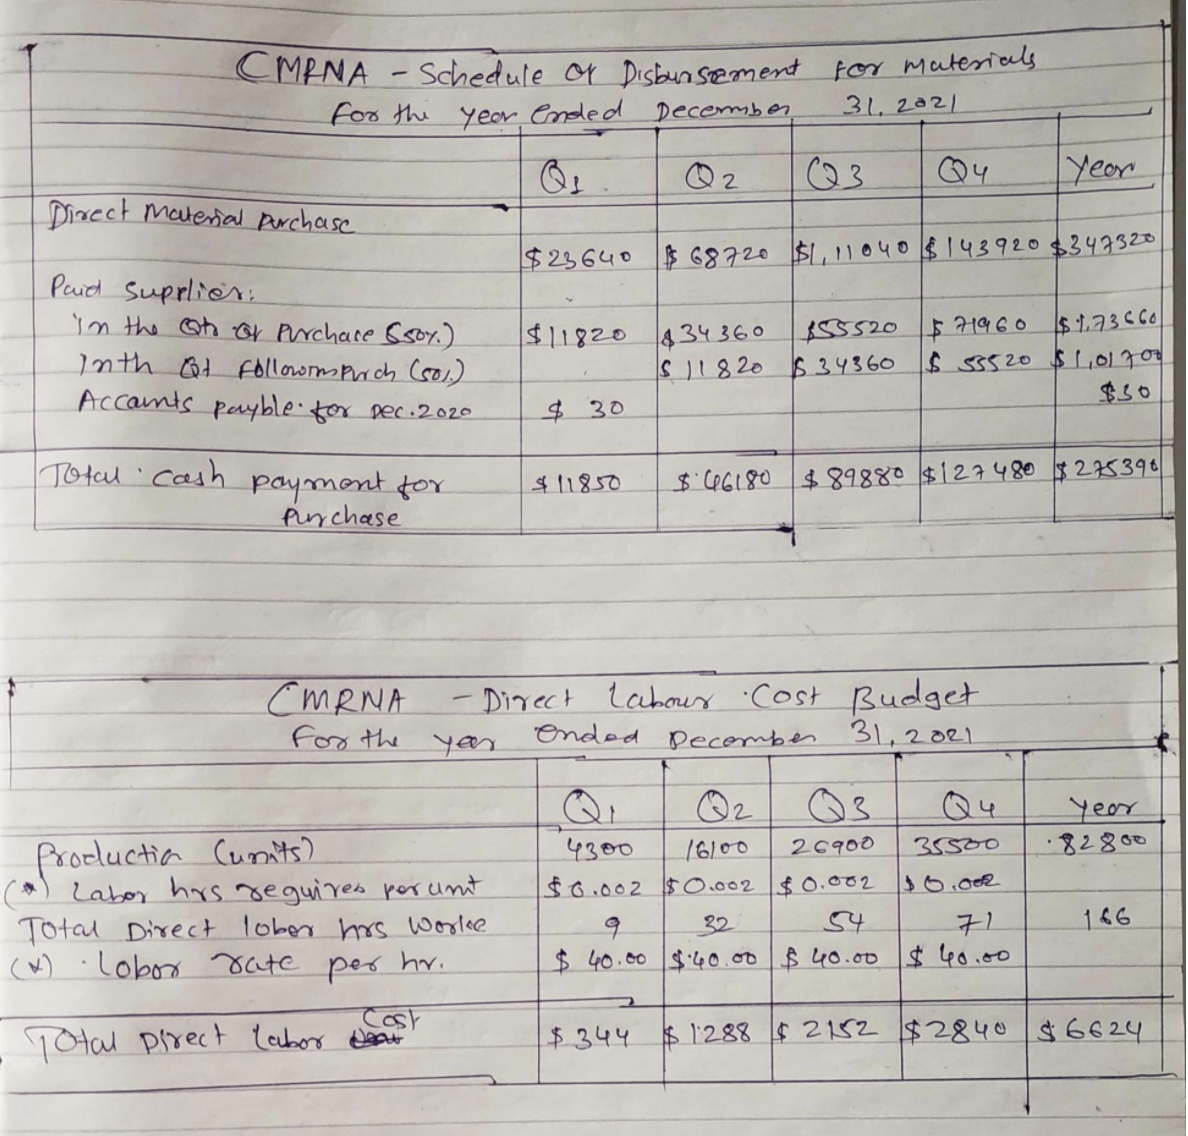 CMRNA - Schedule Of Disbursement For Materials
For the year Ended December 31, 2021
Q1 Q2 Q3 Q4 Year
Direct Material Purchase
$23640 $ 68720 $1,11040 $ 143920 $347320
Paid Supplier:
in the Qtr Of Purchace (50%) $11820 $34360 $55520 $ 71960 $1,73660
Inth Qt (50%) $ 11820 $ 34360 $ 55520 $1,01700
Accaunts payble for Dec. 2020 $ 30 $30
Total cash payment for $11850 $ 46180 $ 89880 $127480 $ 275390
Purchase
CMRNA - Direct Labour Cost Budget
For the year Ended December 31, 2021
Q1 Q2 Q3 Q4 Year
Productio (units) 4300 16100 26900 35500 82800
(*) Labor hrs requires per unit $0.002 $0.002 $0.002 $0.002
Total Direct lober hrs Worke 9 32 54 71 166
(x) Lobor rate per hr. $ 40.00 $ 40.00 $ 40.00 $ 40.00
Cost
Total Direct Labor $ 344 $ 1288 $ 2152 $2840 $ 6624